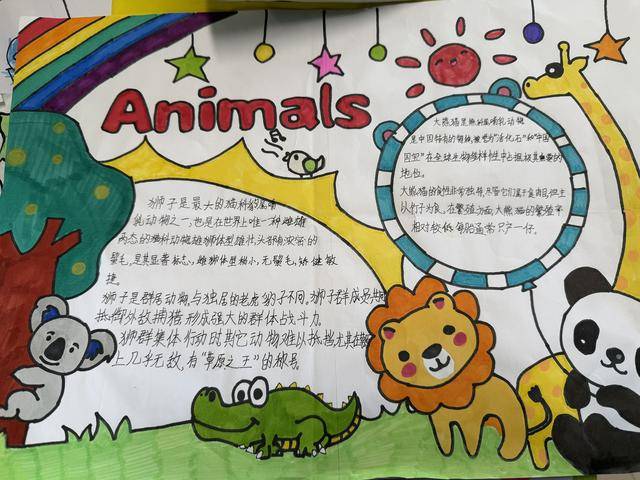 Animals
狮子是最大的猫科哺
乳动物之一,也是在世界上唯一种雌雄
两态的猫科动物雄狮体型雄壮,头部浓密的
鬃毛,是其显著标志,雌狮体型稍小,无鬃毛,矫健敏
捷。
狮子是群居动物,与独居的老虎豹子不同,狮子群成员共同
抵御外敌捕猎形成强大的群体战斗力
狮群集体行动时其它动物难以抵挡尤其
上几乎无敌,有“草原之王”的称号。
大熊猫是熊科哺乳动物
是中国特有的物种,被誉为“活化石”和“中国
国宝”在全球生物多样性中占据其重要的
地位。
大熊猫的食性非常独特,尽管它们属于食肉目,但主
以竹子为食,在繁殖方面,大熊猫的繁殖率
相对较低每胎通常只产一仔。